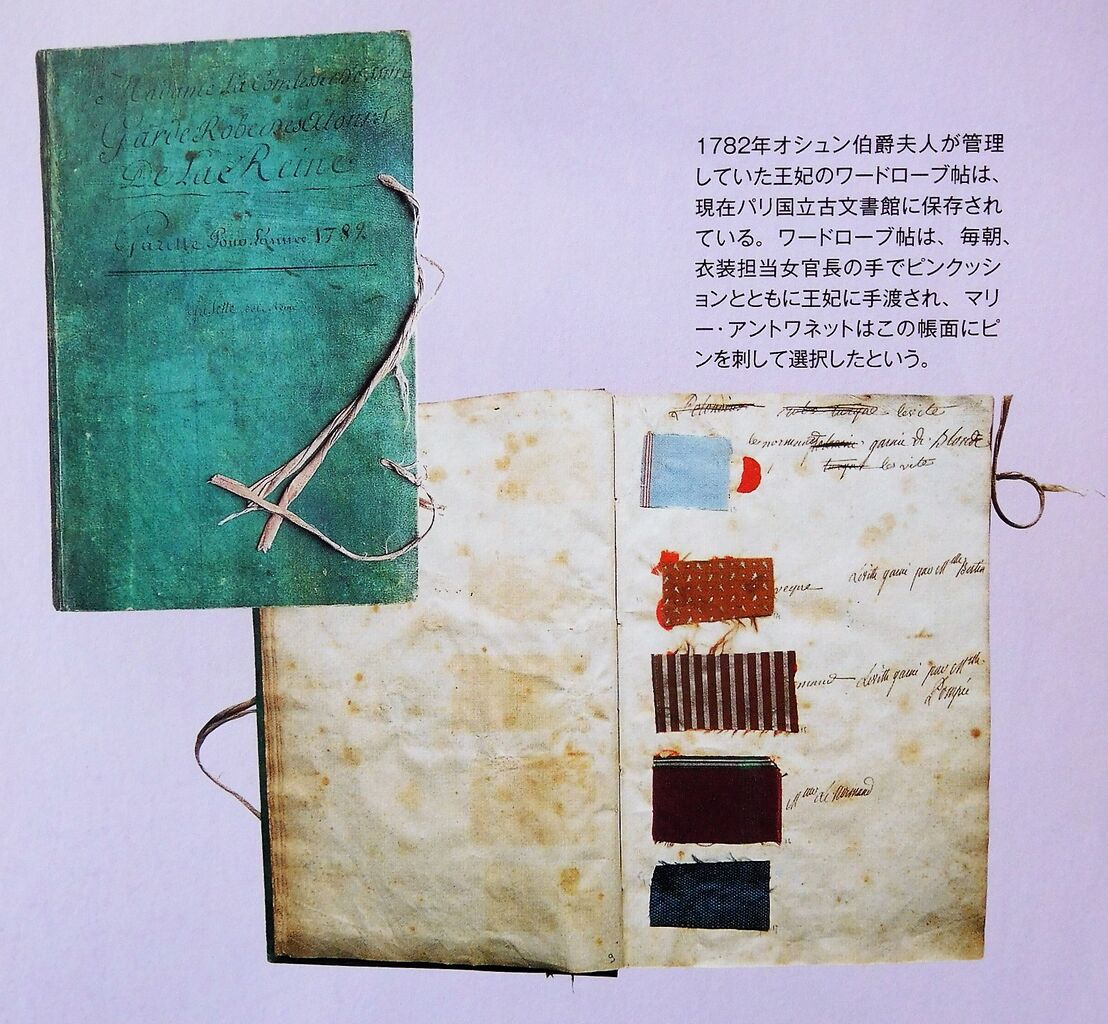 Madame La Comtesse D'ossun
Garde Robe des atours
De La Reine
Gazette Pour L'année 1782
1782年オシュン伯爵夫人が管理
していた王妃のワードローブ帖は、
現在パリ国立古文書館に保存され
ている。ワードローブ帖は、毎朝、
衣装担当女官長の手でピンクッシ
ョンとともに王妃に手渡され、マリ
ー・アントワネットはこの帳面にピ
ンを刺して選択したという。
turque levite
garnie de Blonde
levite
Levite garni par Mlle Bertin
Levite garni par Mlle
Pompée
Mme Le Normand
9